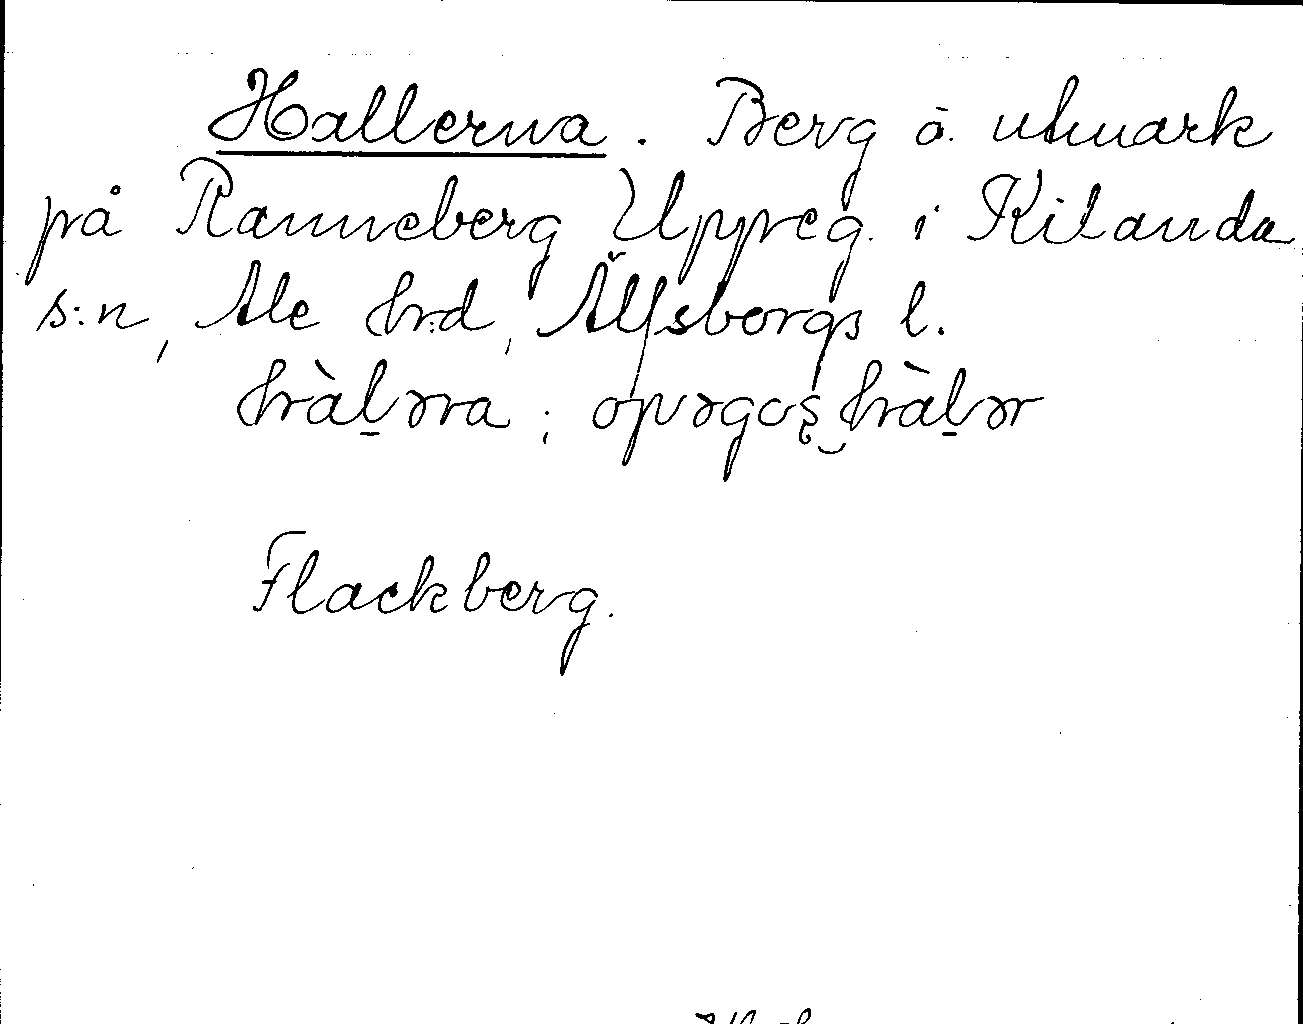 Hallerna. Berg å utmark
på Ranneberg Uppreg. i Kilanda
s:n, Ale hrd, Älfsborgs l.
hàl̠əra; opəgoş hàl̠ər
Flackberg.